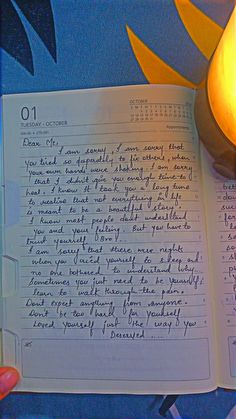 01
TUESDAY • OCTOBER
OCTOBER
Appointments
Dear Me,
I am sorry, I am sorry that
you tried so desperately to fix others, when
your own hands were shaking. I am sorry
that I didn't give you enough time to
heal. I know it took you a long time
to realise that not everything in life
is meant to be a beautiful story.
I know most people don't understand
you and your feeling. But you have to
trust yourself Bro!
I am sorry that there were nights
when you cried yourself to sleep and
no one bothered to understand why...
Sometimes you just need to be yourself,
learn to walk through the pain.
Don't expect anything from anyone.
Don't be too hard for yourself
Loved yourself just the way you
Deserved....